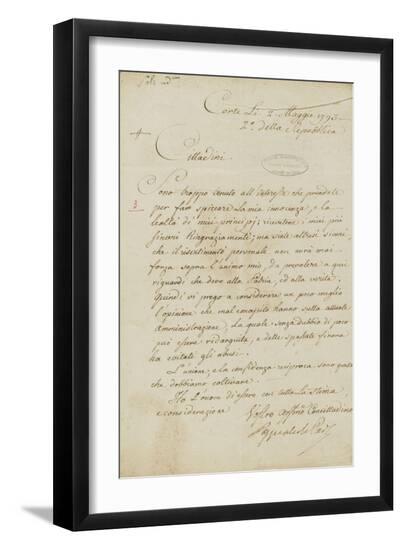 Corte Li 2. Maggio 1793.
2.º della Republica
Cittadini.
Sono troppo tenuto all'interesse che prendete
per far spiccare la mia innocenza, e la
lealtà di miei principj; ricevetene i miei più
sinceri Ringraziamenti; ma siate altresi sicuri,
che il risentimento personale non avrà mai
forza sopra l'animo mio, da prevalere a quei
riguardi che devo alla Patria, ed alla verità.
Quindi vi prego a considerare un poco meglio
l'opinione che mal concepite hanno sulla attuale
Amministrazione; La quale senza dubbio di poco
può essere redarguita, e delle passate finora
ha evitate gli abusi.
L'unione, e la confidenza reciproca sono quelle
che dobbiamo coltivare.
Ho l'onore di essere con tutta la stima,
e considerazione Vostro Concittadino
Pasquale de Paoli
3